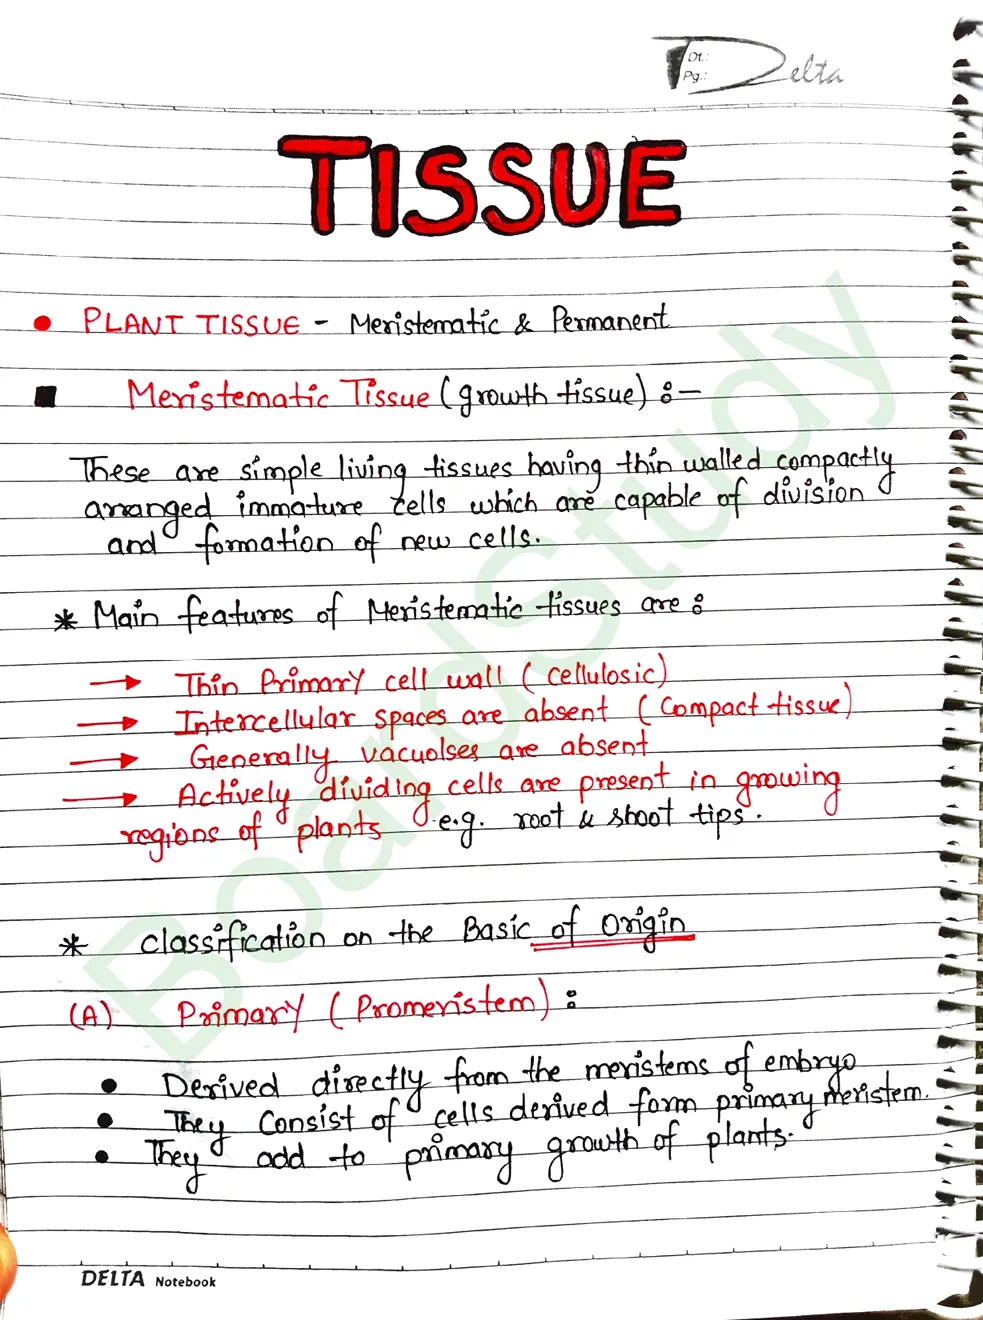 Dt.:
Pg.:
Delta
TISSUE
• PLANT TISSUE - Meristematic & Permanent
■ Meristematic Tissue (growth tissue) :-
These are simple living tissues having thin walled compactly
arranged immature cells which are capable of division
and formation of new cells.
* Main features of Meristematic tissues are :
→ Thin Primary cell wall ( cellulosic)
→ Intercellular spaces are absent ( Compact tissue)
→ Generally vacuolses are absent
→ Actively dividing cells are present in growing
regions of plants e.g. root & shoot tips.
* Classification on the Basic of Origin
(A) Primary ( Promeristem) :
• Derived directly from the meristems of embryo
• They Consist of cells derived form primary meristem.
• They add to primary growth of plants.
DELTA Notebook
BoardStudy